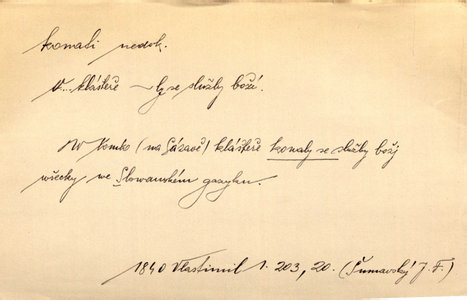 konati nedok.
V... klášteře ~ly se služby boží.
W tomto (na Sázavě) klášteře konaly se služby božj
wšecky we Slowanském gazyku.
1840 Vlastimil 1. 203, 20. (Šumavský J. F.)